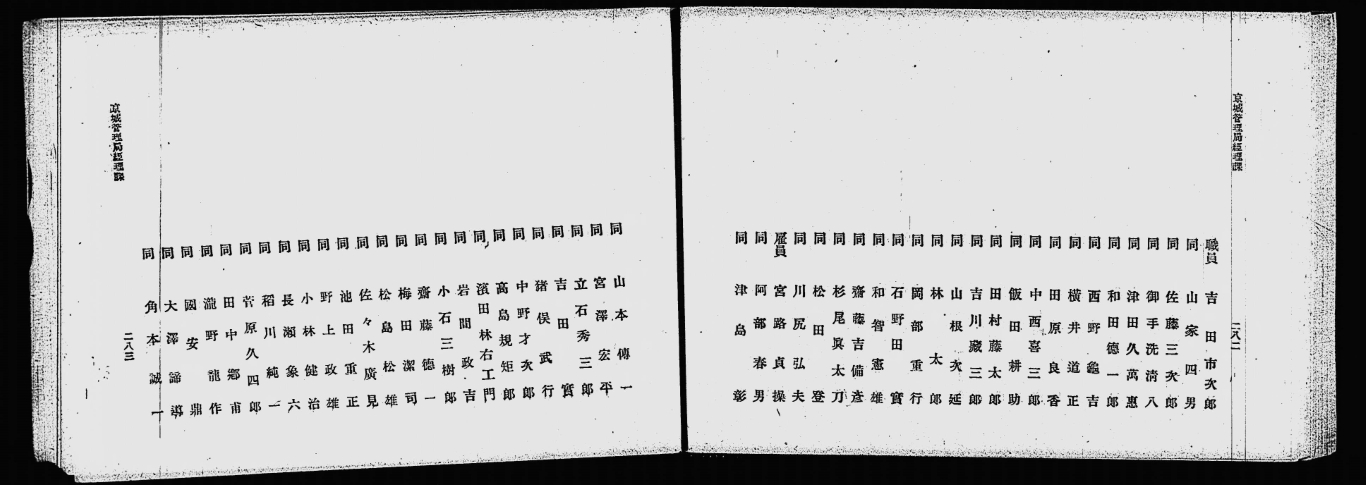 京城管理局經理課
二八二
職員 吉田市次郎
同 山家四男
同 佐藤三次郎
同 御手洗淸八
同 津田久萬惠
同 和田德一郎
同 西野龜吉
同 橫井道正
同 田原良香
同 中西喜三郎
同 飯田耕助
同 田村藤太郎
同 吉川藏三郎
同 山根次延
同 林太郎
同 岡部重行
同 石野田實
同 和智憲雄
同 齋藤吉備彥
同 杉尾眞太刀
同 松田登
同 川尻弘夫
雇員 宮路貞操
同 阿部春男
同 津島彰
同 山本傳一
同 宮澤宏平
同 立石秀三郎
同 吉田實
同 猪俣武行
同 中野才次郎
同 高島規矩郎
同 濱田林右工門
同 岩間政吉
同 小石三樹郎
同 齋藤德一
同 梅田潔司
同 松島松雄
同 佐々木廣見
同 池田重正
同 野上政雄
同 小林健治
同 長瀨象六
同 稻川純一
同 菅原久四郎
同 田中鄉甫
同 瀧野龍作
同 國安鼎
同 大澤諦導
同 角本誠一
京城管理局經理課
二八三